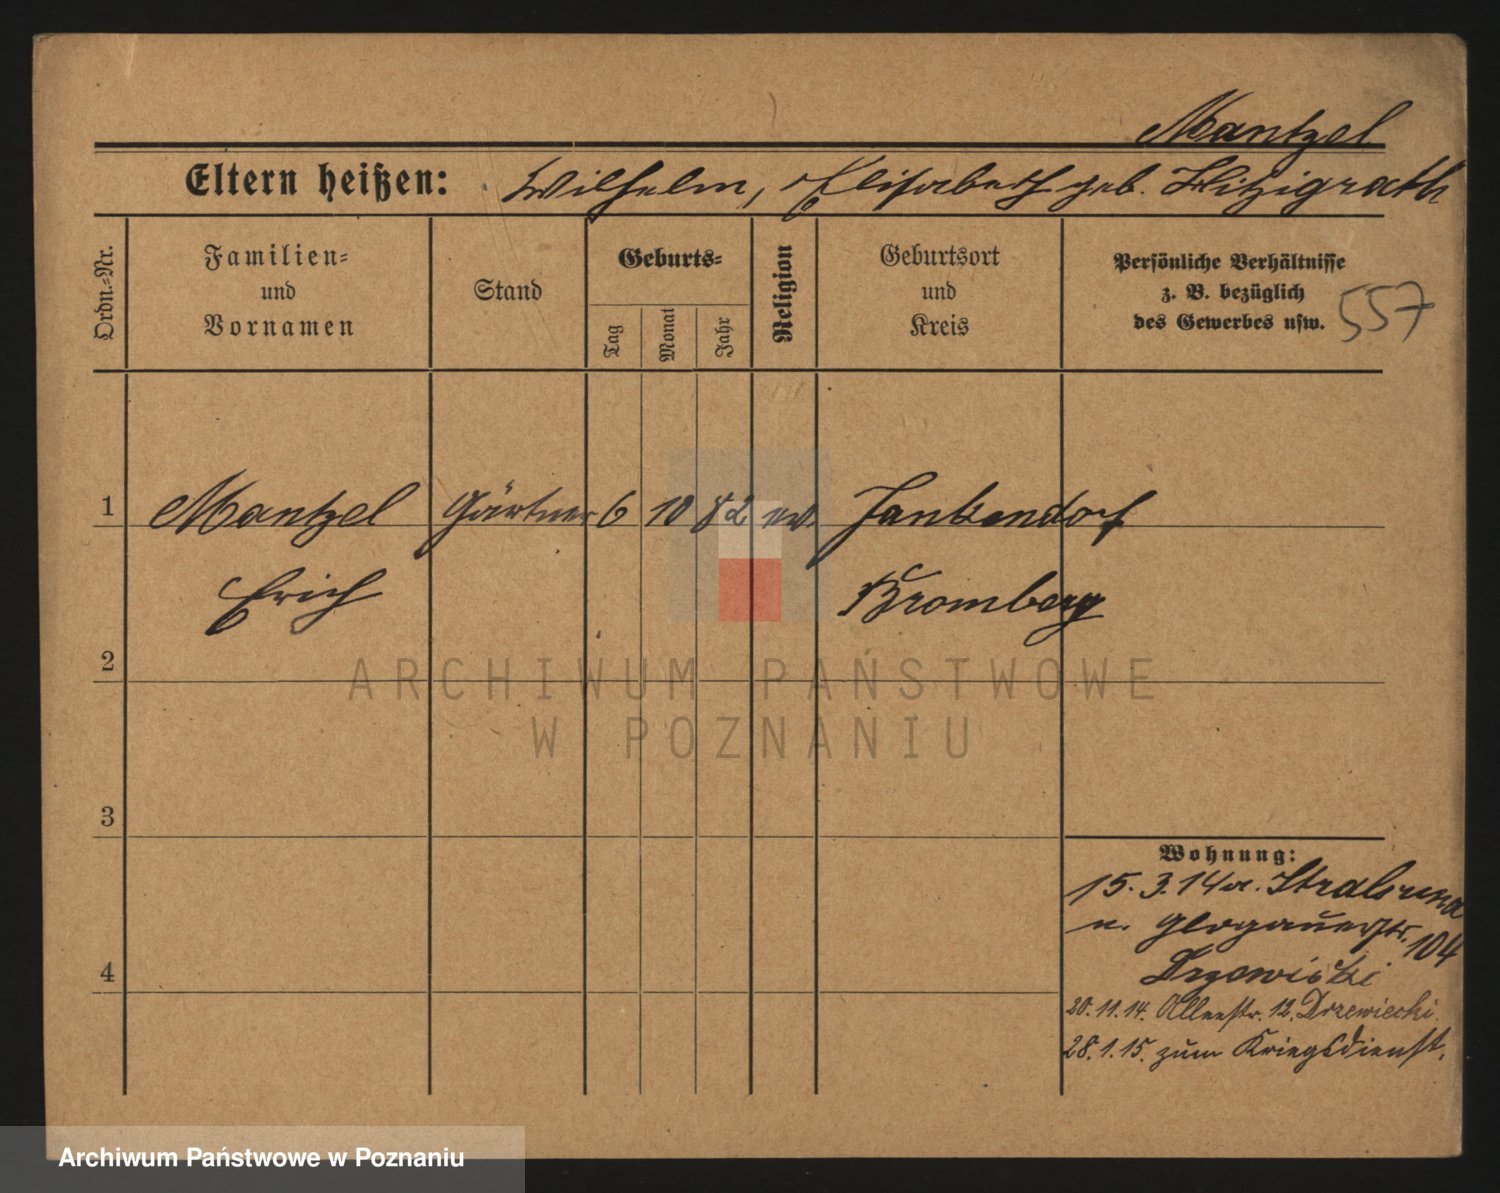 Mantzel
Eltern heißen: Wilhelm, Elisabeth geb. Witzigrath
Ordn.-Nr.
Familien-
und
Vornamen
Stand
Geburts-
Tag
Monat
Jahr
Religion
Geburtsort
und
Kreis
Persönliche Verhältnisse
z. B. bezüglich
des Gewerbes usw.
557
1 Mantzel Gärtner 6 10 82 ev. Jankendorf
Erich Bromberg
2
ARCHIWUM PAŃSTWOWE
W POZNANIU
3
Wohnung:
15. 3. 14 a. Stralsund
n. Glogauerstr. 104
4
20. 11. 14. Alleestr. 12. Drzewiecki.
28. 1. 15. zum Kriegsdienst.
Archiwum Państwowe w Poznaniu